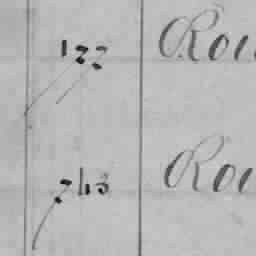 122 Rou
743 Rou